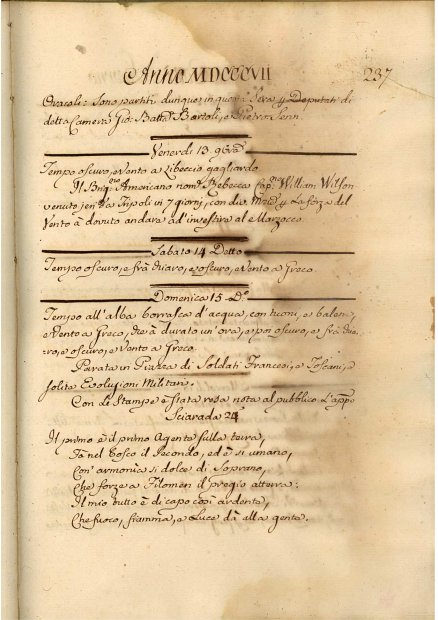 Anno MDCCCVII 237
Oracoli: Sono partiti dunque in questa Sera 4 Deputati di
detta Camera Gio: Batta Bartoli, e Pietro Senn.
Venerdi 13. 9bre
Tempo oscuro, e Vento a Libeccio gagliardo
Il Brigno Americano nomto Rebecca Capne William Wilson
venuto jeri da Tripoli in 7 giorni, con div. Merci, 4 La forza del
Vento à dovuto andare ad investire al Marzocco.
Sabato 14 Detto
Tempo oscuro, e frà chiaro, e oscuro, e Vento a Greco.
Domenica 15. Do
Tempo all'alba borrasca d'acqua, con tuoni, e baleni,
e Vento a Greco, che à durato un'ora, e poi oscuro, e frà chia=
ro, e oscuro, e Vento a Greco.
Parata in Piazza di Soldati Francesi, e Toscani, e
solita Evoluzioni Militari.
Con le Stampe è stata resa nota al pubblico L'appo
Sciarada 24a
Il primo è il primo Agente sulla terra,
Fà nel bosco il Secondo, ed è si umano,
Con' armonica si dolce di Soprano,
Che forze a Filomen il pregio atterra:
Il mio tutto è di capo così ardente,
Che fuoco, fiamma, e Luce dà alla gente.